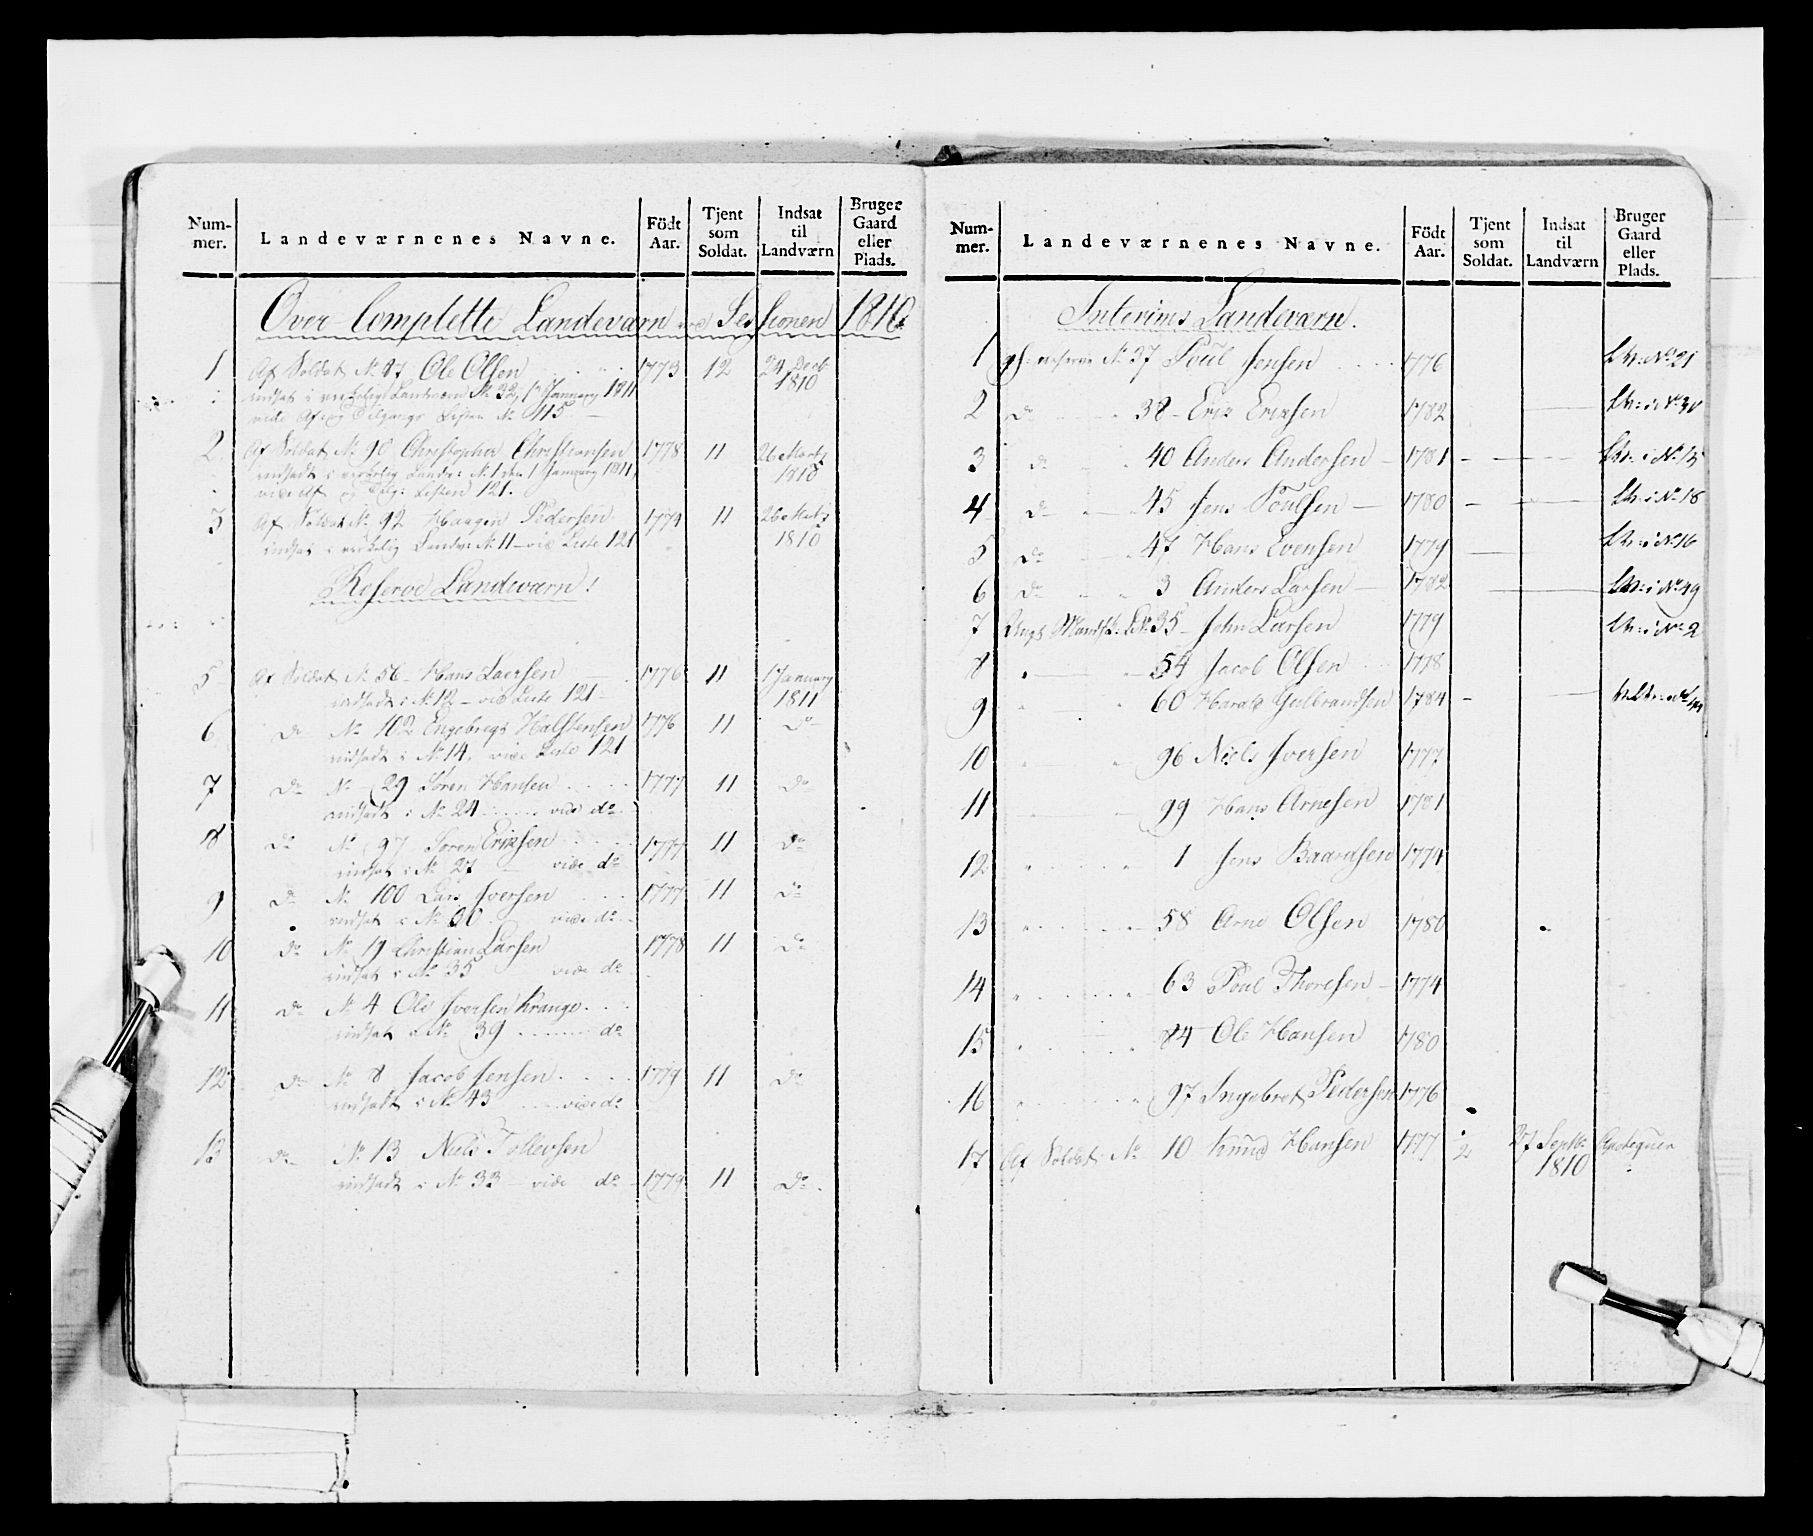 Num-mer. Landeværnenes Navne. Födt Aar. Tjent som Soldat. Indsat til Landværn Bruger Gaard eller Plads.
Over Complette Landeværn ved Sessionen 1810
1 Af Soldat № 87 Ole Olsen 1773 12 24 Decb
indsat i virkelige Landværn № 32, 1 January 1811 1810
vide Af og Tilgangs Listen № 115
2 Af Soldat № 90 Christopher Christiansen 1778 11 26 Marts
indsadt i virkelig Landv: № 1 den 1 January 1811, 1810
vide Af og Tilg: Listen 121.
3 Af Soldat № 92 Haagen Pedersen 1774 11 26 Marts
indsat i virkelig Landv: № 11 – vid Liste 121 1810
Reserve Landeværn!
5 Af Soldat № 56 Hans Larsen 1776 11 1 January
indsadt i № 12 – vid Liste 121 1811
6 do № 102 Engebregt Halstensen 1776 11 do
indsadt i № 14, vide Liste 121
7 do № 29 Søren Hansen 1777 11 do
indsadt i № 24 vide do
8 do № 97 Søren Eriksen 1777 11 do
indsat i № 27 vide do
9 do № 100 Lars Iversen 1777 11 do
indsat i № 30 vide do
10 do № 19 Christian Larsen 1778 11 do
indsat i № 35 vide do
11 do № 4 Ole Iversen Krange
indsat i № 39 do
12 do № 8 Jacob Jensen 1779 11 do
indsadt i № 43 vide do
13 do № 13 Niels Tollevsen
indsadt i № 33 – vide do 1779 11 do
Num-mer. Landeværnenes Navne. Födt Aar. Tjent som Soldat. Indsat til Landværn Bruger Gaard eller Plads.
Interims Landeværn.
1 reserve № 37 Poul Jensen 1776 № 21
2 do 38 Erik Eriksen 1782
3 do 40 Anders Andersen 1781 i № 15
4 do 45 Jens Poulsen 1780 i № 18
5 do 47 Hans Evensen 1779 i № 16
6 do 3 Anders Larsen 1782 i № 49
7 Ungt Mandsk: L № 35 John Larsen 1779 i № 2
8 " 54 Jacob Olsen 1778
9 " 60 Harald Gulbrandsen 1784
10 " 96 Niels Iversen 1777
11 " 99 Hans Arnesen 1781
12 " 1 Jens Baardsen 1774
13 " 58 Arne Olsen 1780
14 " 63 Poul Thoresen 1774
15 " 84 Ole Hansen 1780
16 " 97 Ingebret Pedersen 1776
17 Af Soldat № 10 Knud Hansen 1777 2 27 Septbr
1810